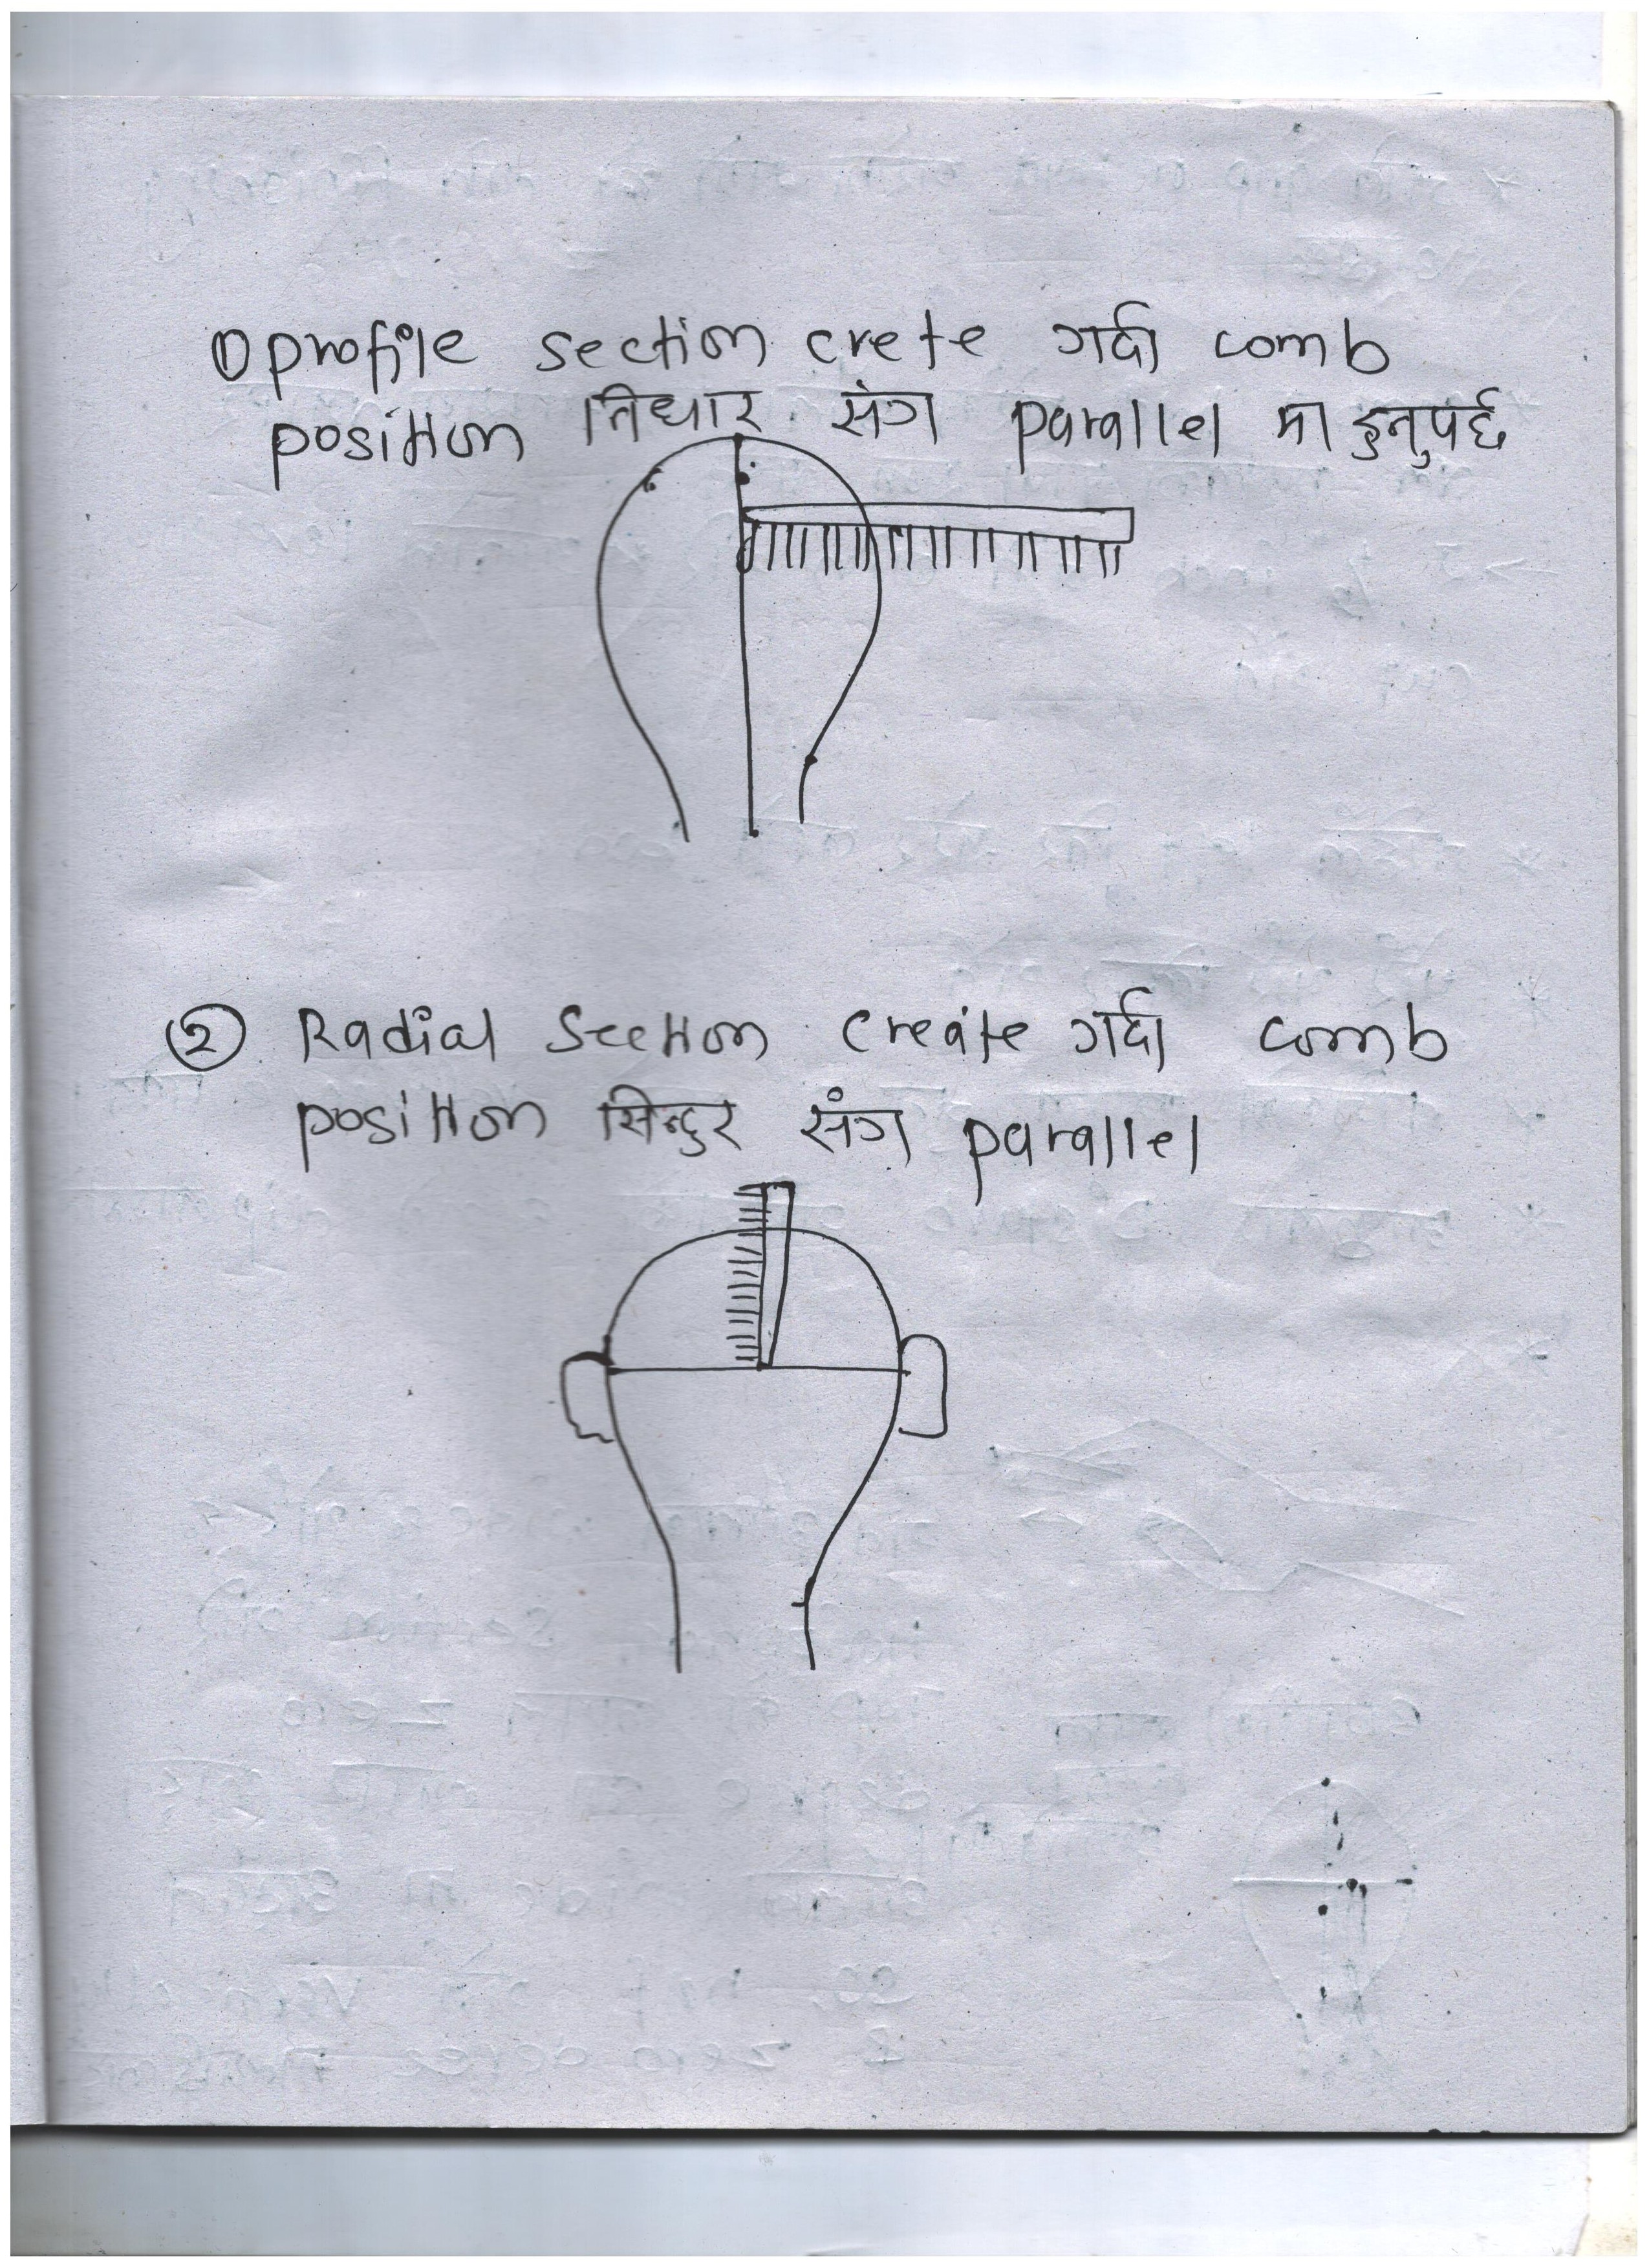 ① profile section crete गर्दा comb
position निधार संग parallel मा हुनुपर्छ
② Radial Section create गर्दा comb
position सिन्दुर संग parallel